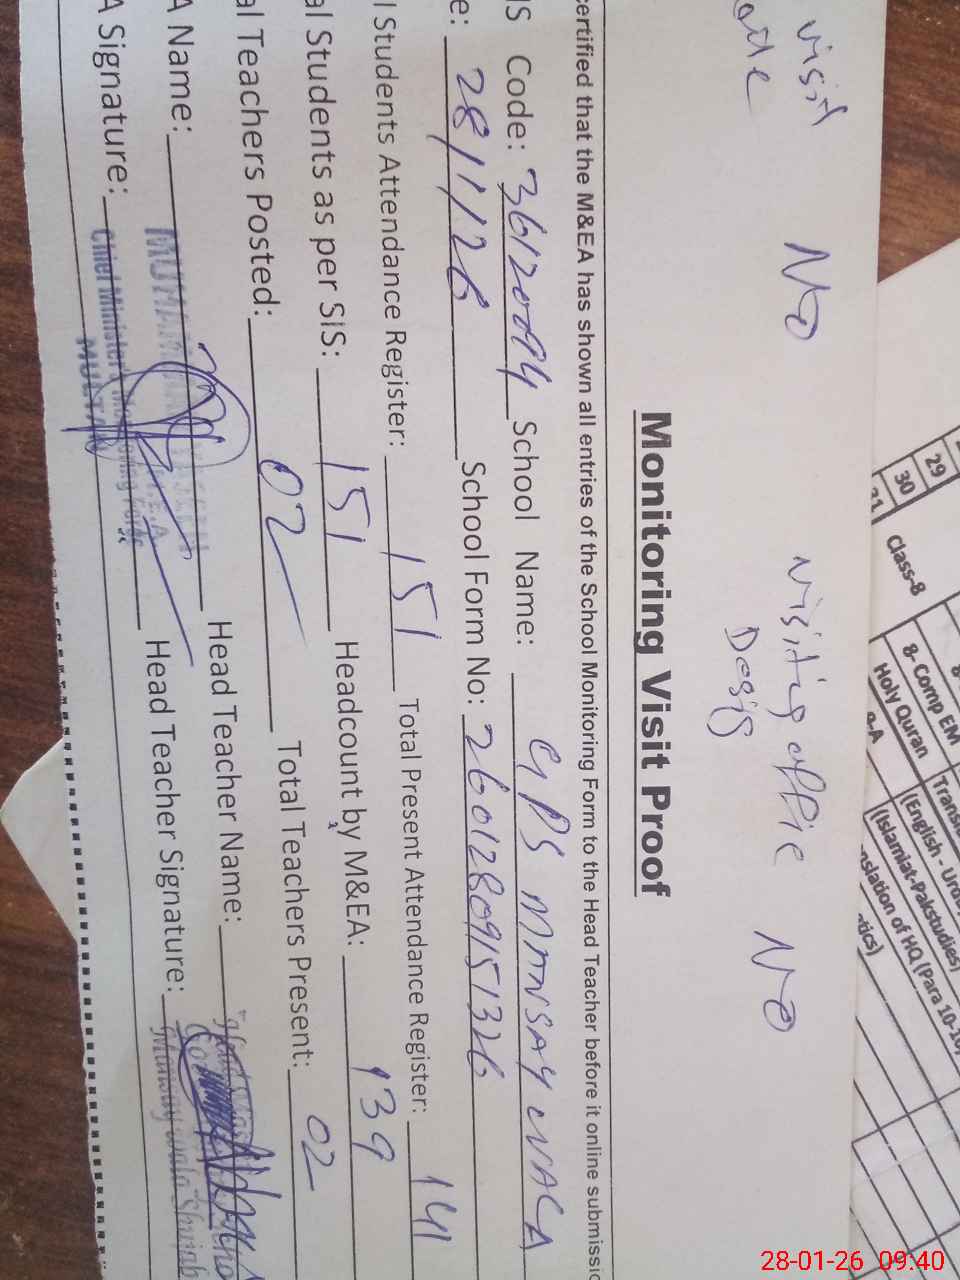 visit NO visiting offic NO
Desig
Monitoring Visit Proof
certified that the M&EA has shown all entries of the School Monitoring Form to the Head Teacher before it online submissio
IS Code: 36120094 School Name: GPS
e: 28/1/26 School Form No: 2601280951326
l Students Attendance Register: 151 Total Present Attendance Register: 141
al Students as per SIS: 151 Headcount by M&EA: 139
al Teachers Posted: 02 Total Teachers Present: 02
A Name: Head Teacher Name:
A Signature: Head Teacher Signature:
Chief Minister's Monitoring Force
MULTAN
29
30
31
Class-8
8- Comp EM
Holy Quran
(English - Urdu
(Islamiat-Pakstudies)
nslation of HQ (Para 10-
28-01-26 09:40